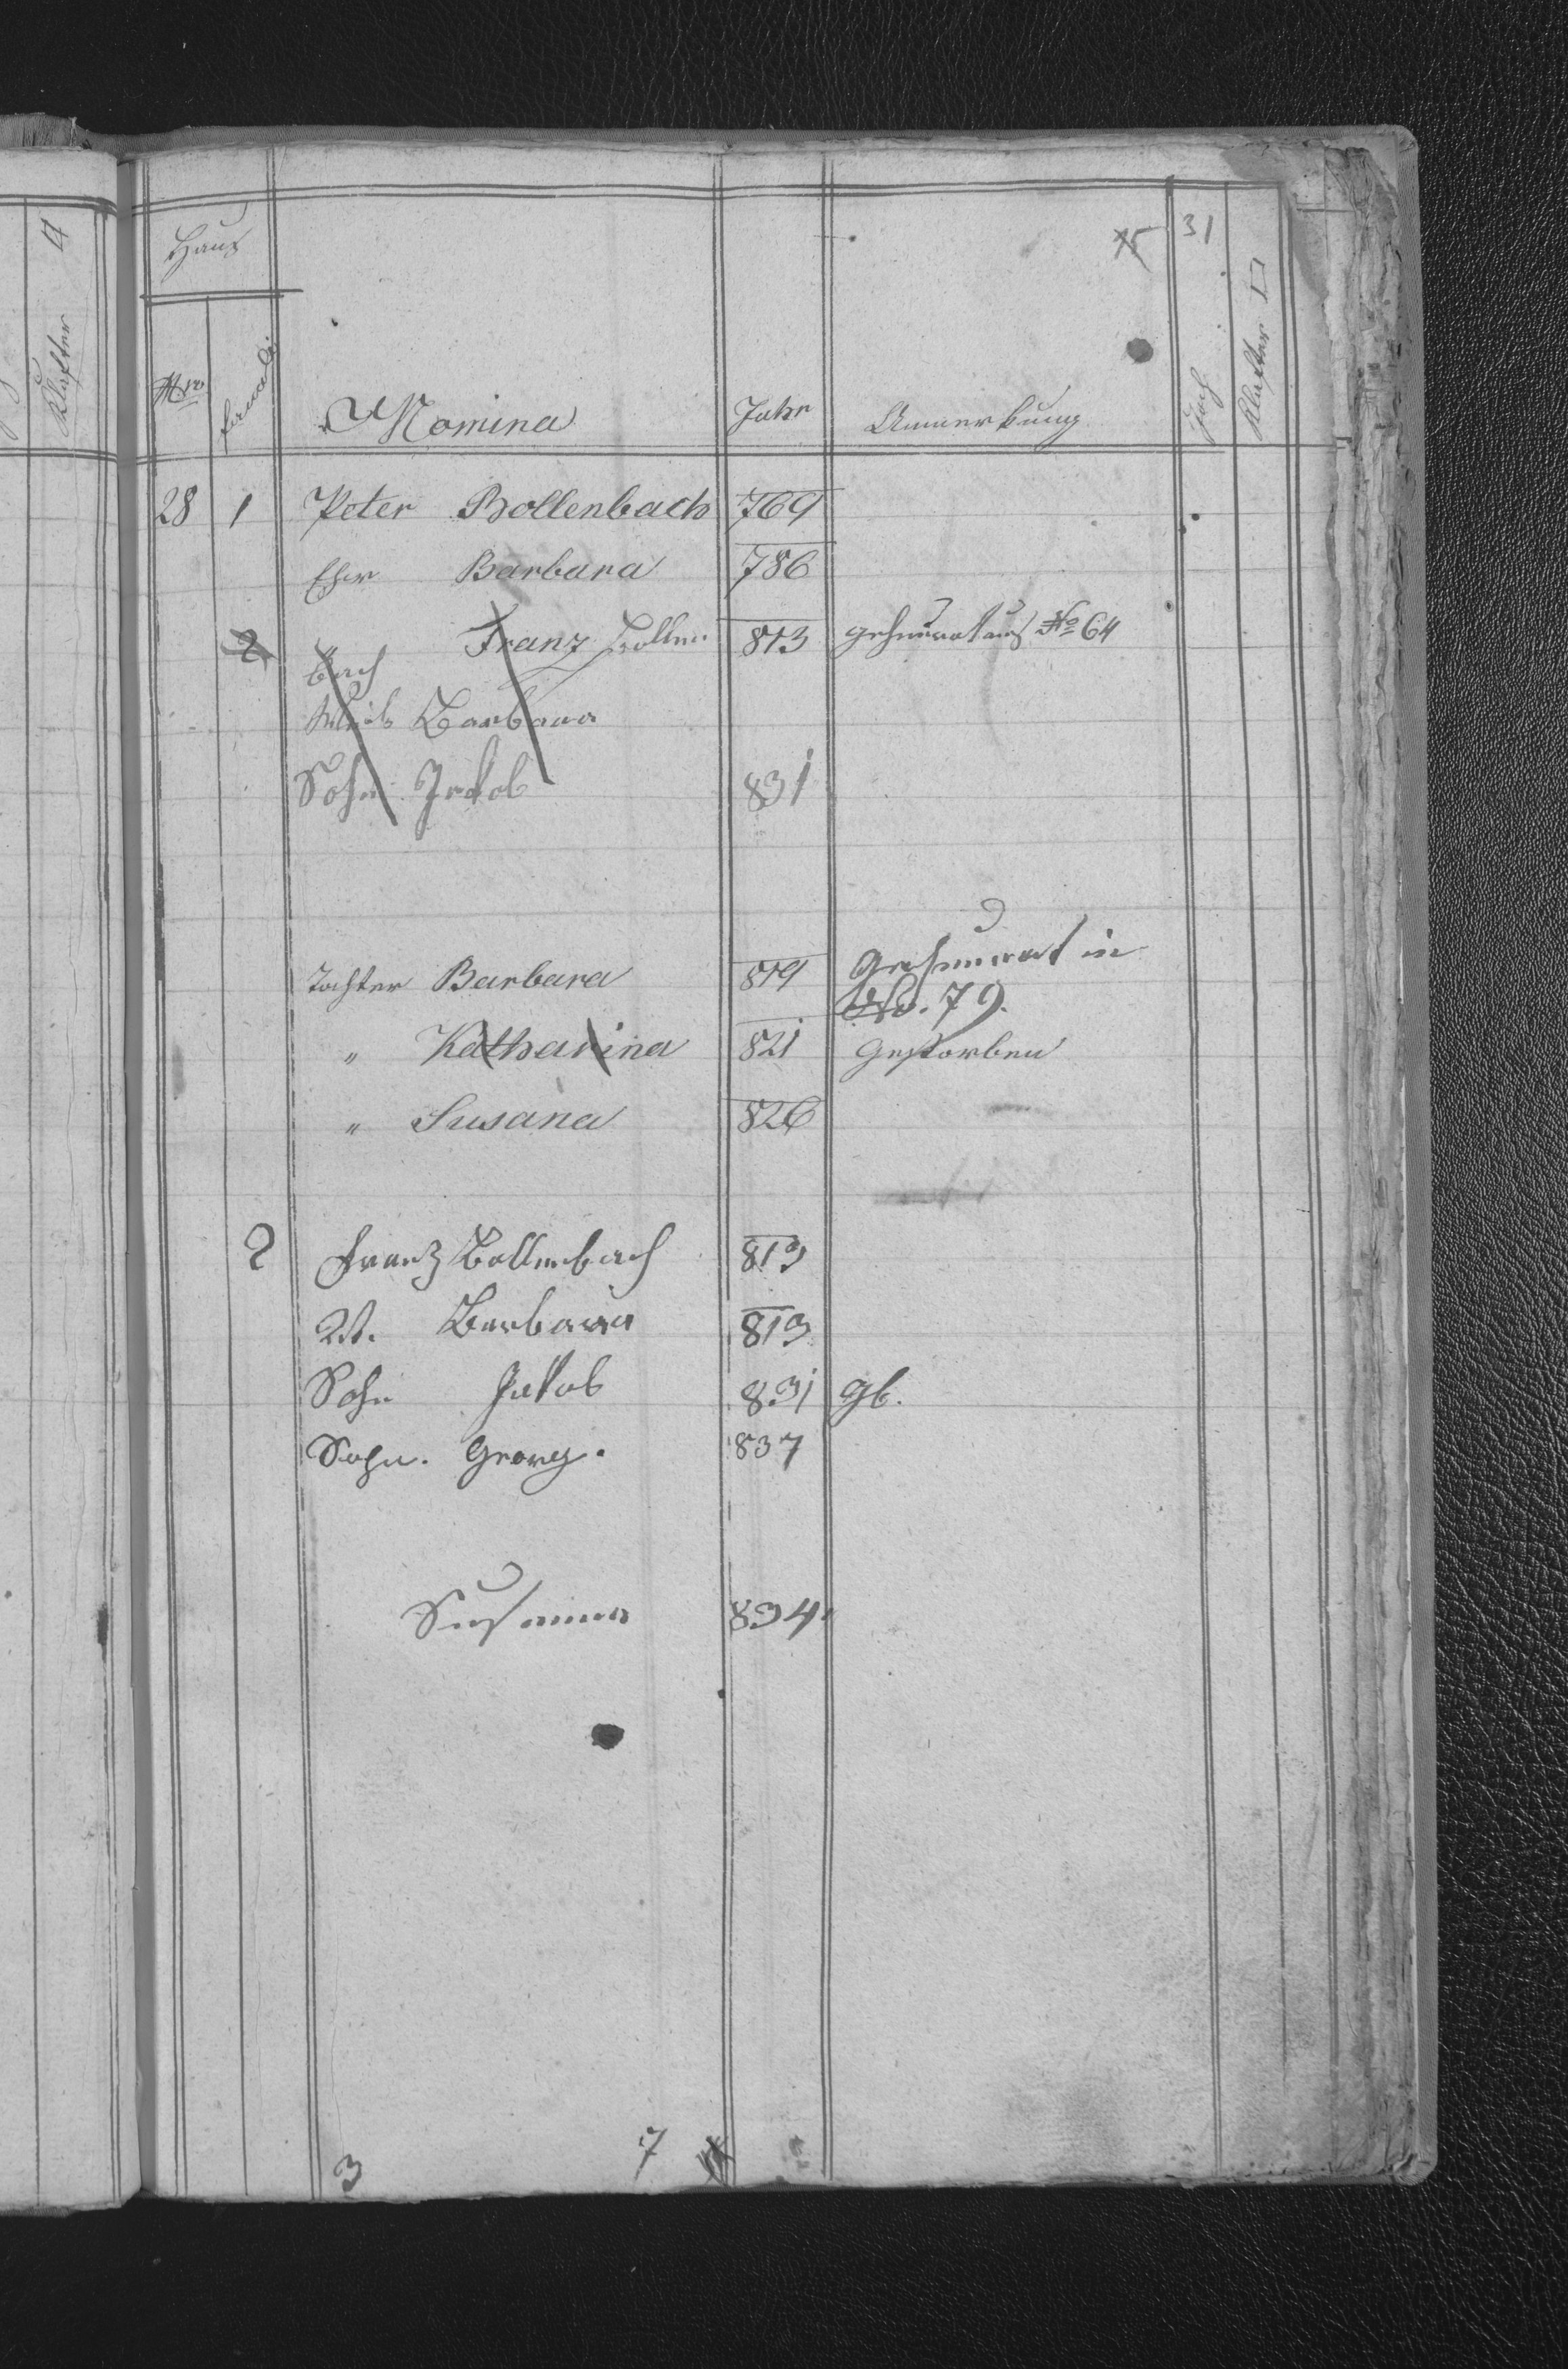 Klafter □
Haus
31
Nro
Familie
Nomina
Jahr
Anmerkung
Joch
Klafter □
28 1 Peter Bollenbach 769
Ehw Barbara 786
2 Franz Bollen 813 geheurat aus No 64
bach
Weib Barbara
Sohn Jakob 831
Tochter Barbara 819 Geheurat in
No. 79.
" Katharina 821 Gestorben
" Susana 826
2 Franz Bollenbach 813
W. Barbara 813
Sohn Jakob 831 gb.
Sohn. Georg. 837
Susanna 834.
3 7